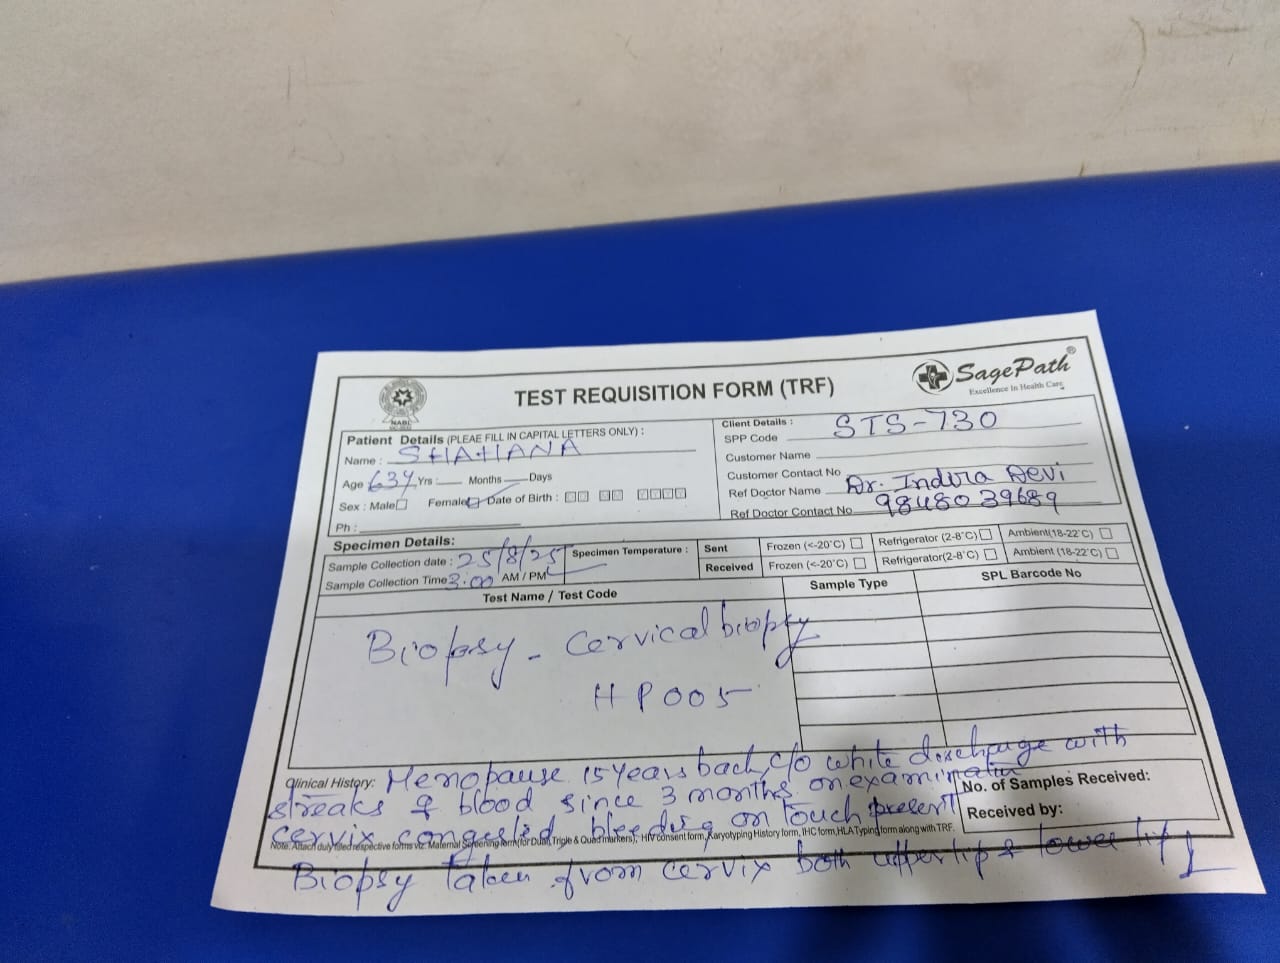 TEST REQUISITION FORM (TRF)
SagePath®
Excellence In Health Care
NABL
Patient Details (PLEAE FILL IN CAPITAL LETTERS ONLY) :
Name : SHAHANA
Age 63Y Yrs : Months Days
Sex : Male Female Date of Birth :
Ph :
Client Details :
SPP Code STS-730
Customer Name
Customer Contact No
Ref Doctor Name Dr. Indira Devi
Ref Doctor Contact No 9848039689
Specimen Details:
Sample Collection date : 25/8/25
Sample Collection Time 3:00 AM / PM
Specimen Temperature :
Sent Frozen (<-20°C) Refrigerator (2-8°C) Ambient(18-22°C)
Received Frozen (<-20°C) Refrigerator(2-8°C) Ambient (18-22°C)
Test Name / Test Code
Sample Type
SPL Barcode No
Biopsy - Cervical biopsy
HP005
Clinical History: Menopause 15 years back, c/o white discharge with
streaks of blood since 3 months on examination
cervix congested bleeding on touch present
No. of Samples Received:
Received by:
Note: Attach duly filled respective forms viz. Maternal Screening form (for Dual, Triple & Quad markers), HIV consent form, Karyotyping History form, IHC form, HLA Typing form along with TRF.
Biopsy taken from cervix both upper lip & lower lip